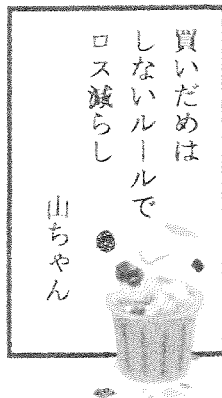 買いだめは
しないルールで
ロス減らし
山ちゃん